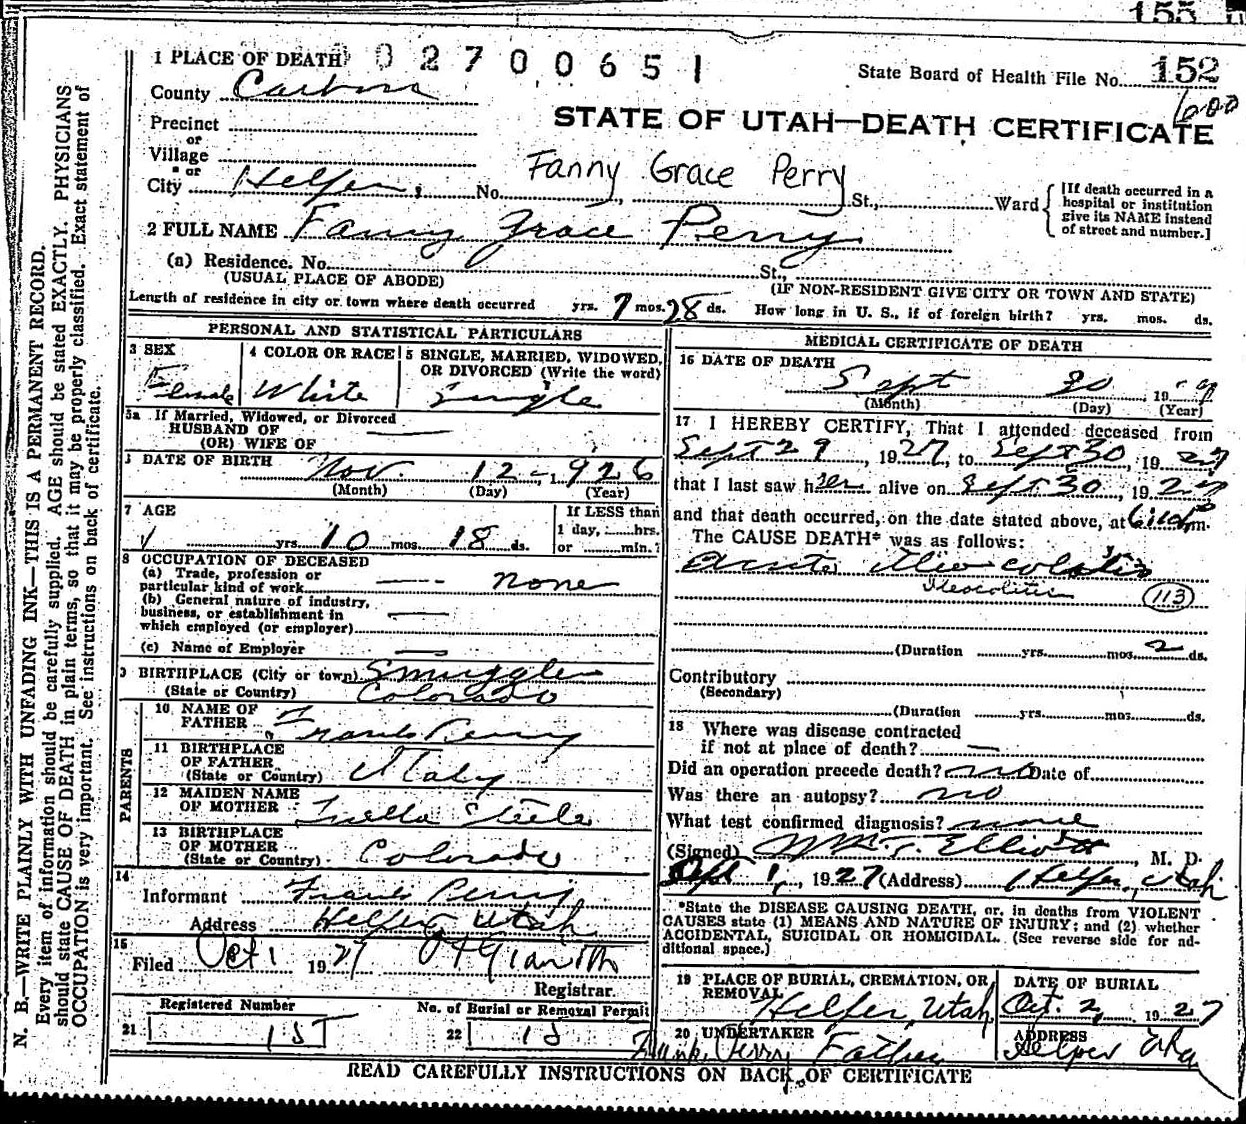 155
1 PLACE OF DEATH 02700651
State Board of Health File No. 152
County Carbon
600
STATE OF UTAH—DEATH CERTIFICATE
Precinct
or
Village
or
City Helper, No. St., Ward
Fanny Grace Perry
[If death occurred in a
hospital or institution
give its NAME instead
of street and number.]
2 FULL NAME Fanny Grace Perry
(a) Residence. No. St.,
(USUAL PLACE OF ABODE) (IF NON-RESIDENT GIVE CITY OR TOWN AND STATE)
Length of residence in city or town where death occurred yrs. 7 mos. 28 ds. How long in U. S., if of foreign birth? yrs. mos. ds.
PERSONAL AND STATISTICAL PARTICULARS
3 SEX
Female
4 COLOR OR RACE
White
5 SINGLE, MARRIED, WIDOWED,
OR DIVORCED (Write the word)
Single
5a If Married, Widowed, or Divorced
HUSBAND OF
(OR) WIFE OF
DATE OF BIRTH Nov. 12 - 1926
(Month) (Day) (Year)
7 AGE
yrs. 10 mos. 18 ds.
If LESS than
1 day, hrs.
or min.?
8 OCCUPATION OF DECEASED
(a) Trade, profession or
particular kind of work none
(b) General nature of industry,
business, or establishment in
which employed (or employer)
(c) Name of Employer
9 BIRTHPLACE (City or town) Smuggler
(State or Country) Colorado
PARENTS
10 NAME OF
FATHER Frank Perry
11 BIRTHPLACE
OF FATHER
(State or Country) Italy
12 MAIDEN NAME
OF MOTHER Luella Steele
13 BIRTHPLACE
OF MOTHER
(State or Country) Colorado
14
Informant Frank Perry
Address Helper Utah
15
Filed Oct 1 1927
Registrar.
Registered Number
21
No. of Burial or Removal Permit
22
MEDICAL CERTIFICATE OF DEATH
16 DATE OF DEATH
Sept 30 19
(Month) (Day) (Year)
17 I HEREBY CERTIFY, That I attended deceased from
Sept 29, 1927, to Sept 30, 1927
that I last saw her alive on Sept 30, 1927
and that death occurred, on the date stated above, at m.
The CAUSE DEATH* was as follows:
Acute Ilio colitis
Ileocolitis (113)
(Duration yrs. mos. 2 ds.
Contributory
(Secondary)
(Duration yrs. mos. ds.
18 Where was disease contracted
if not at place of death?
Did an operation precede death? no Date of
Was there an autopsy? no
What test confirmed diagnosis? none
(Signed) Elliott, M. D.
1, 1927 (Address) Helper, Utah
*State the DISEASE CAUSING DEATH, or, in deaths from VIOLENT
CAUSES state (1) MEANS AND NATURE OF INJURY; and (2) whether
ACCIDENTAL, SUICIDAL OR HOMICIDAL. (See reverse side for ad-
ditional space.)
19 PLACE OF BURIAL, CREMATION, OR
REMOVAL
Helper, Utah
DATE OF BURIAL
Oct. 2, 1927
20 UNDERTAKER
Frank Perry Father
ADDRESS
Helper Utah
READ CAREFULLY INSTRUCTIONS ON BACK OF CERTIFICATE
N. B.—WRITE PLAINLY WITH UNFADING INK—THIS IS A PERMANENT RECORD.
Every item of information should be carefully supplied. AGE should be stated EXACTLY. PHYSICIANS
should state CAUSE OF DEATH in plain terms, so that it may be properly classified. Exact statement of
OCCUPATION is very important. See instructions on back of certificate.